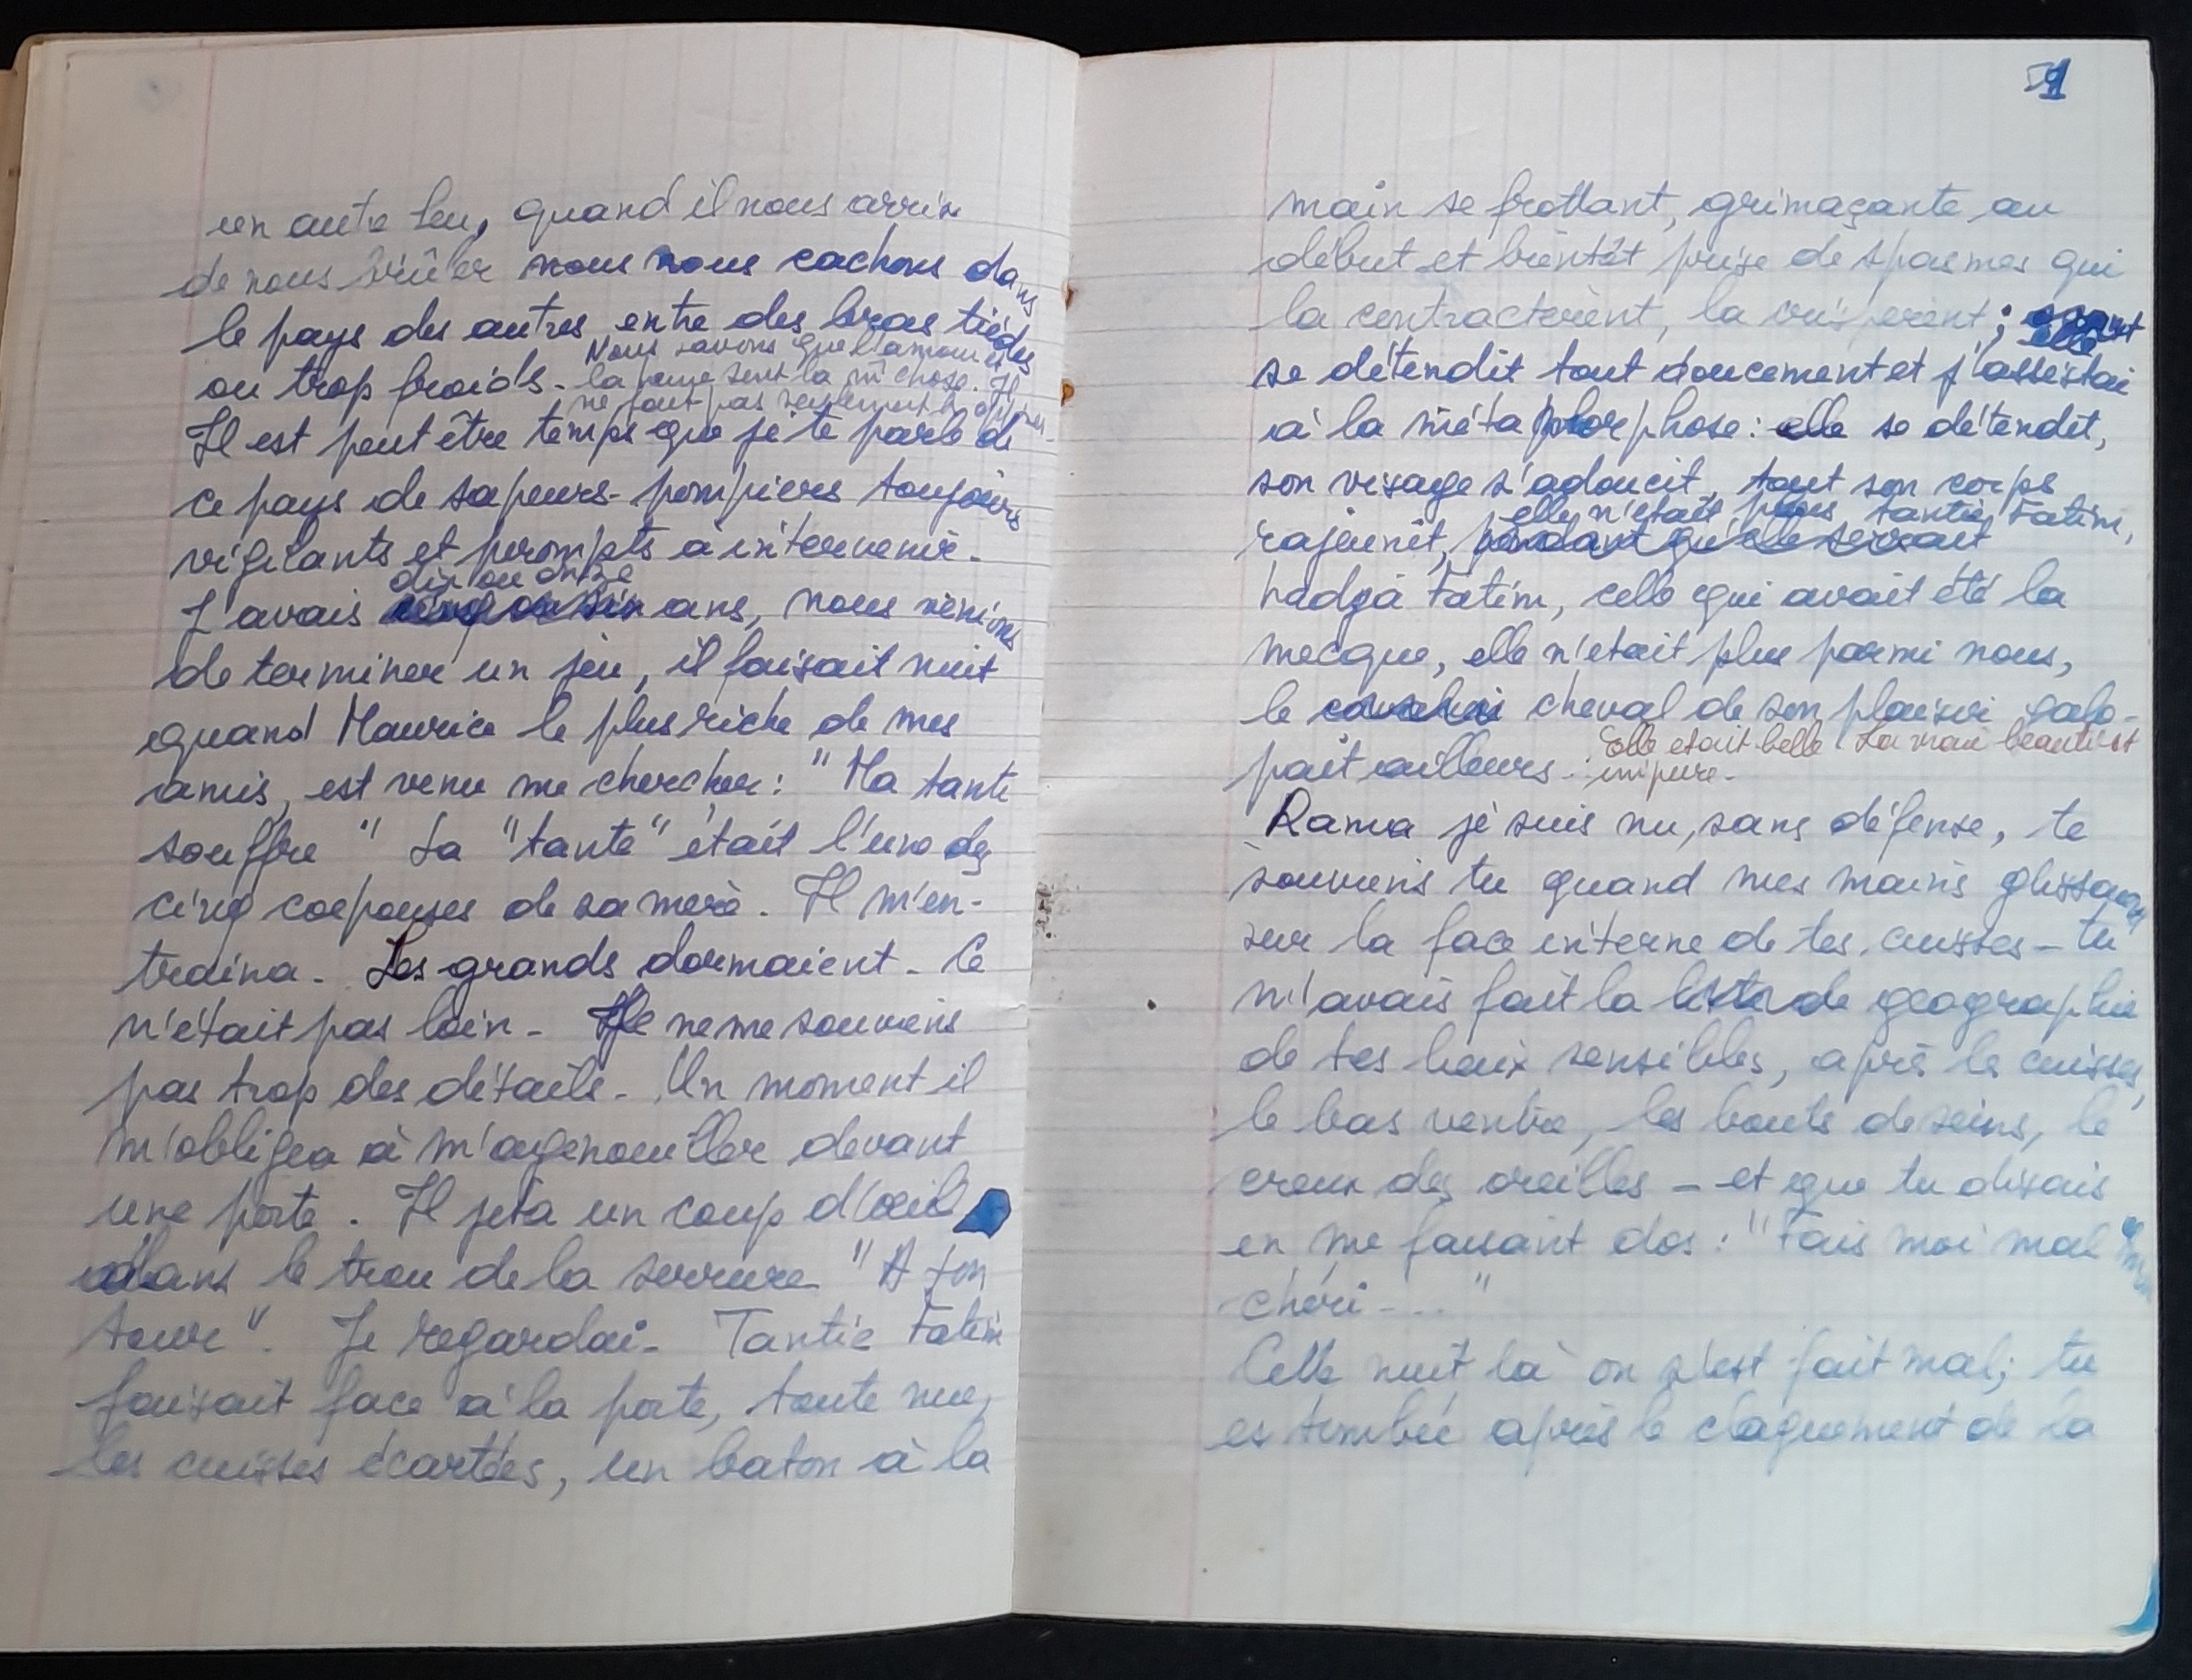 un autre feu, quand il nous arrive
de nous brûler nous nous cachons dans
le pays des autres entre des bras tièdes
ou trop froids - Nous savons que l'amour et
la haine sont la m̂ chose. Il
ne faut pas seulement
Il est peut être temps que je te parle de
ce pays de sapeurs-pompiers toujours
vigilants et prompts à intervenir -
dix ou onze
J'avais cinq ou six ans, nous venions
de terminer un jeu, il faisait nuit
quand Maurice le plus riche de mes
amis, est venu me chercher : "Ma tante
souffre" La "tante" était l'une des
cinq coépouses de sa mère. Il m'en-
traina - Les grands dormaient - Ce
n'était pas loin - Je ne me souviens
pas trop des détails - Un moment il
m'obligea à m'agenouiller devant
une porte. Il jeta un coup d'œil
dans le trou de la serrure "A ton
tour". Je regardai - Tantie Fatim
faisait face à la porte, toute nue,
les cuisses écartées, un baton à la
main se frottant, grimaçante au
début et bientôt prise de spasmes qui
la contractèrent, la crispèrent ; elle
se détendit tout doucement et j'assistai
à la métamorphose : elle se détendit,
son visage s'adoucit, tout son corps
elle n'était plus tantie Fatim,
rajeunit, pendant qu'elle servait
hadja Fatim, celle qui avait été la
mecque, elle n'etait plus parmi nous,
le cheval de son plaisir galo-
pait ailleurs. Elle etait belle La vraie beauté est
impure -
Rama je suis nu, sans défense, te
souviens tu quand mes mains glissaient
sur la face interne de tes cuisses - tu
m'avais fait la liste de geographie
de tes lieux sensibles, après les cuisses,
le bas ventre, les bouts de seins, le
creux des oreilles - et que tu disais
en me faisant dos : "Fais moi mal
chéri - ... "
Cette nuit là on s'est fait mal ; tu
es tombée après le claquement de la